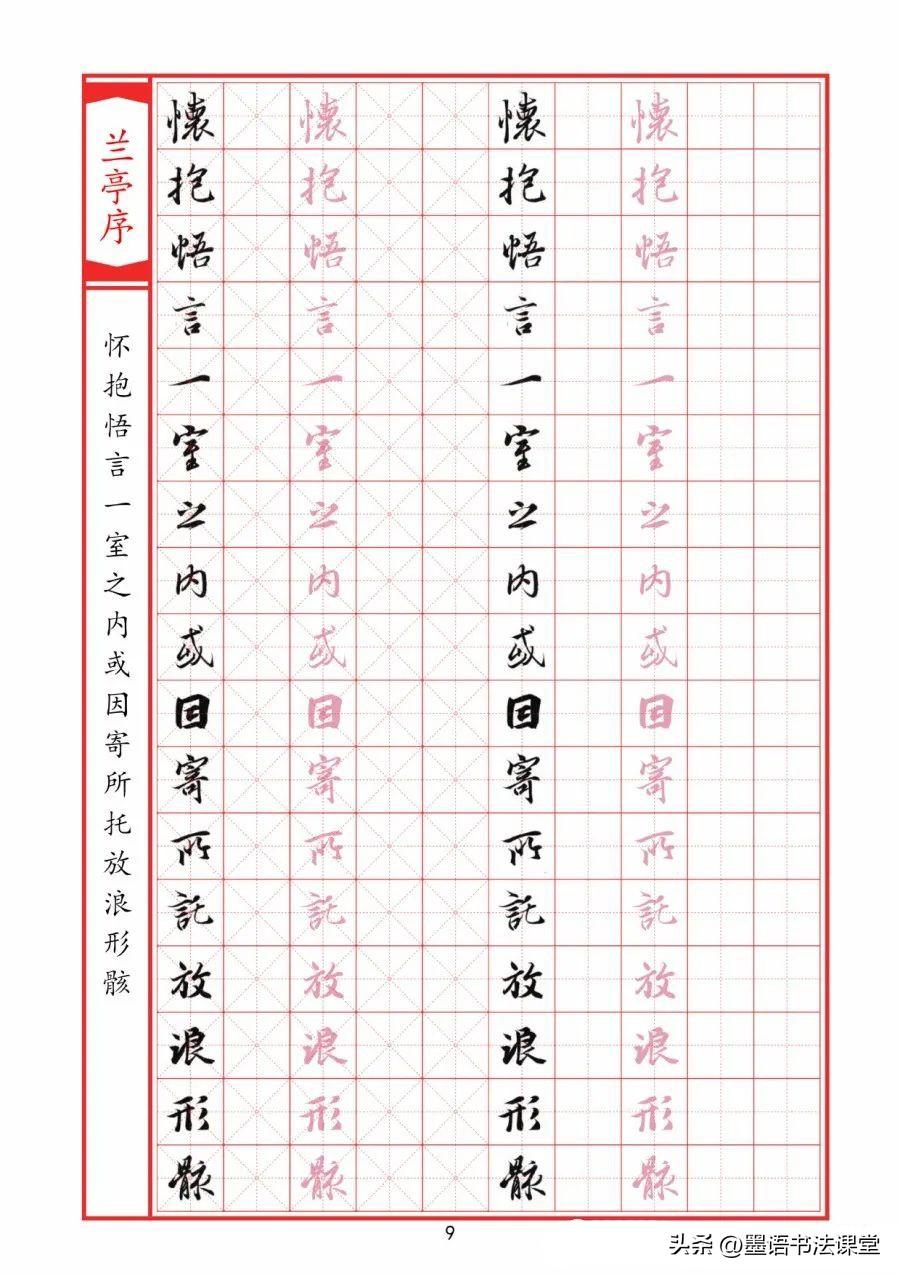 兰亭序
怀抱悟言一室之内或因寄所托放浪形骸
懷抱悟言一室之内或因寄所託放浪形骸
懷抱悟言一室之内或因寄所託放浪形骸
懷抱悟言一室之内或因寄所託放浪形骸
懷抱悟言一室之内或因寄所託放浪形骸
9
头条 @墨语书法课堂